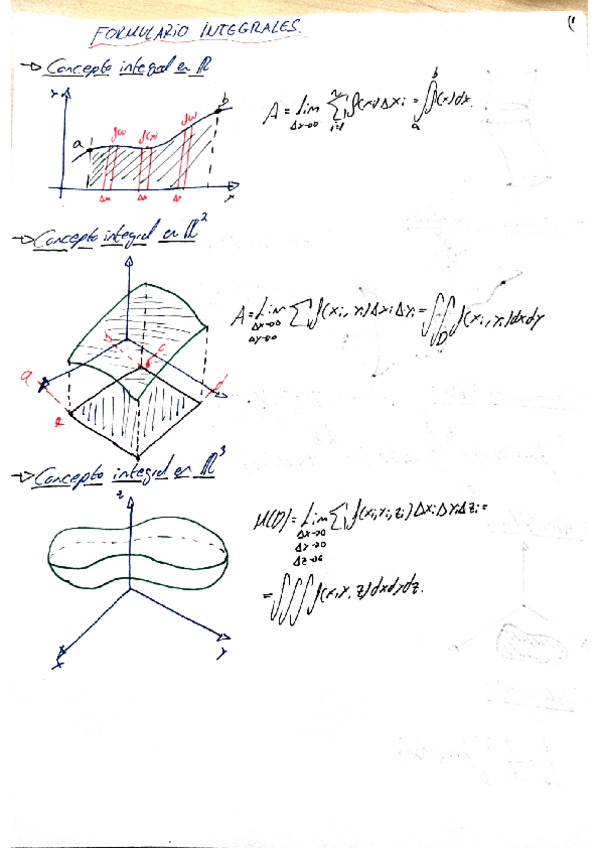 FORMULARIO INTEGRALES.
(1
→ Concepto integral en ℝ
Y
a
b
f(x) f(x) f(x)
Δx Δx Δx
x
A = lim Δx→0 Σ i=1 n f(xi) Δxi = ∫ a b f(x) dx.
→ Concepto integral en ℝ²
a
b
c
d
A = Lim Δx→0 Δy→0 Σ f(xi, yi) Δxi Δyi = ∬ D f(xi, yi) dx dy
→ Concepto integral en ℝ³
z
x
y
M(D) = Lim Δx→0 Δy→0 Δz→0 Σ f(xi, yi, zi) Δxi Δyi Δzi =
= ∭ f(x, y, z) dx dy dz.